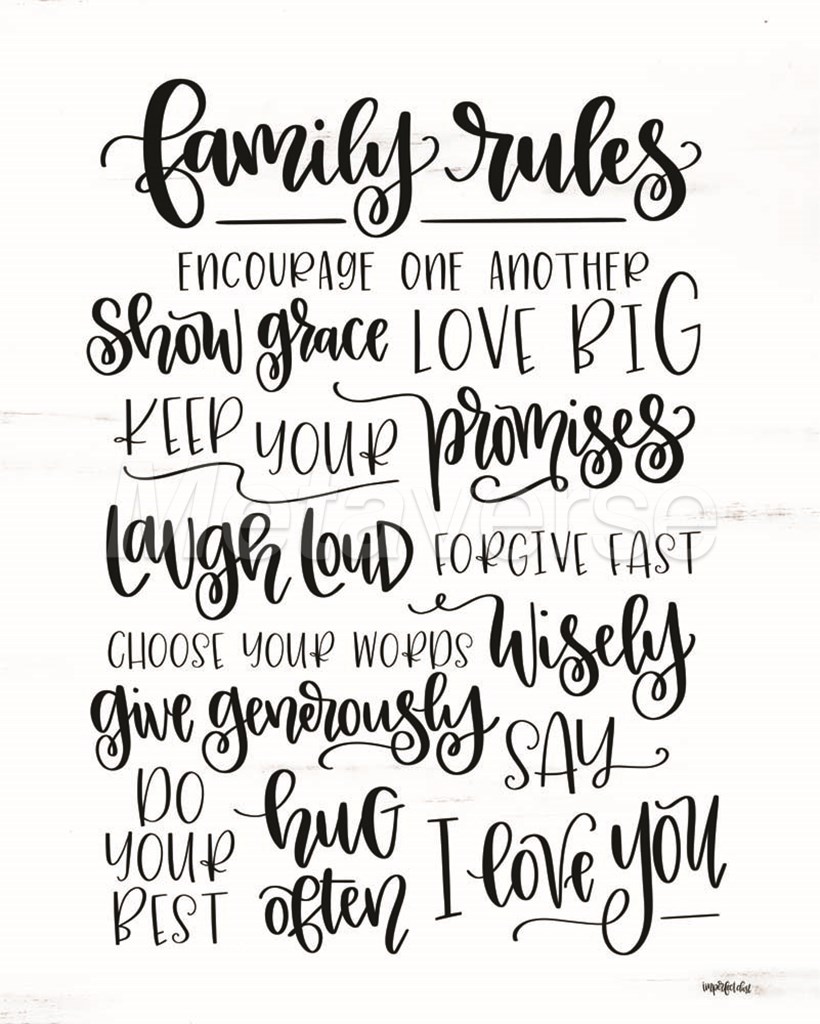 family rules
ENCOURAGE ONE ANOTHER
Show grace LOVE BIG
KEEP YOUR promises
Metaverse
Laugh Loud FORGIVE FAST
CHOOSE YOUR WORDS Wisely
give generously SAY
DO YOUR BEST hug often I love you
imperfect dust